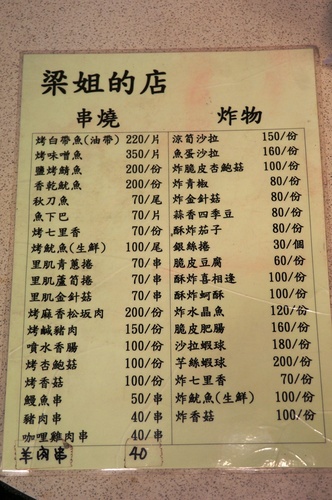 梁姐的店
串燒
烤白帶魚(油帶) 220/片
烤味噌魚 350/片
鹽烤鯖魚 200/份
香乾魷魚 200/份
秋刀魚 70/尾
魚下巴 70/片
烤七里香 70/份
烤魷魚(生鮮) 100/尾
里肌青蔥捲 70/串
里肌蘆筍捲 70/串
里肌金針菇 70/串
烤麻香松坂肉 200/份
烤鹹豬肉 150/份
噴水香腸 100/份
烤杏鮑菇 100/份
烤香菇 100/份
鰻魚串 50/串
豬肉串 40/串
咖哩雞肉串 40/串
羊肉串 40
炸物
涼筍沙拉 150/份
魚蛋沙拉 160/份
炸脆皮杏鮑菇 100/份
炸青椒 80/份
炸金針菇 80/份
蒜香四季豆 80/份
酥炸茄子 80/份
銀絲捲 30/個
脆皮豆腐 60/份
酥炸喜相逢 100/份
酥炸蚵酥 100/份
炸水晶魚 120/份
脆皮肥腸 160/份
沙拉蝦球 180/份
芋絲蝦球 200/份
炸七里香 70/份
炸魷魚(生鮮) 100/份
炸香菇 100/份